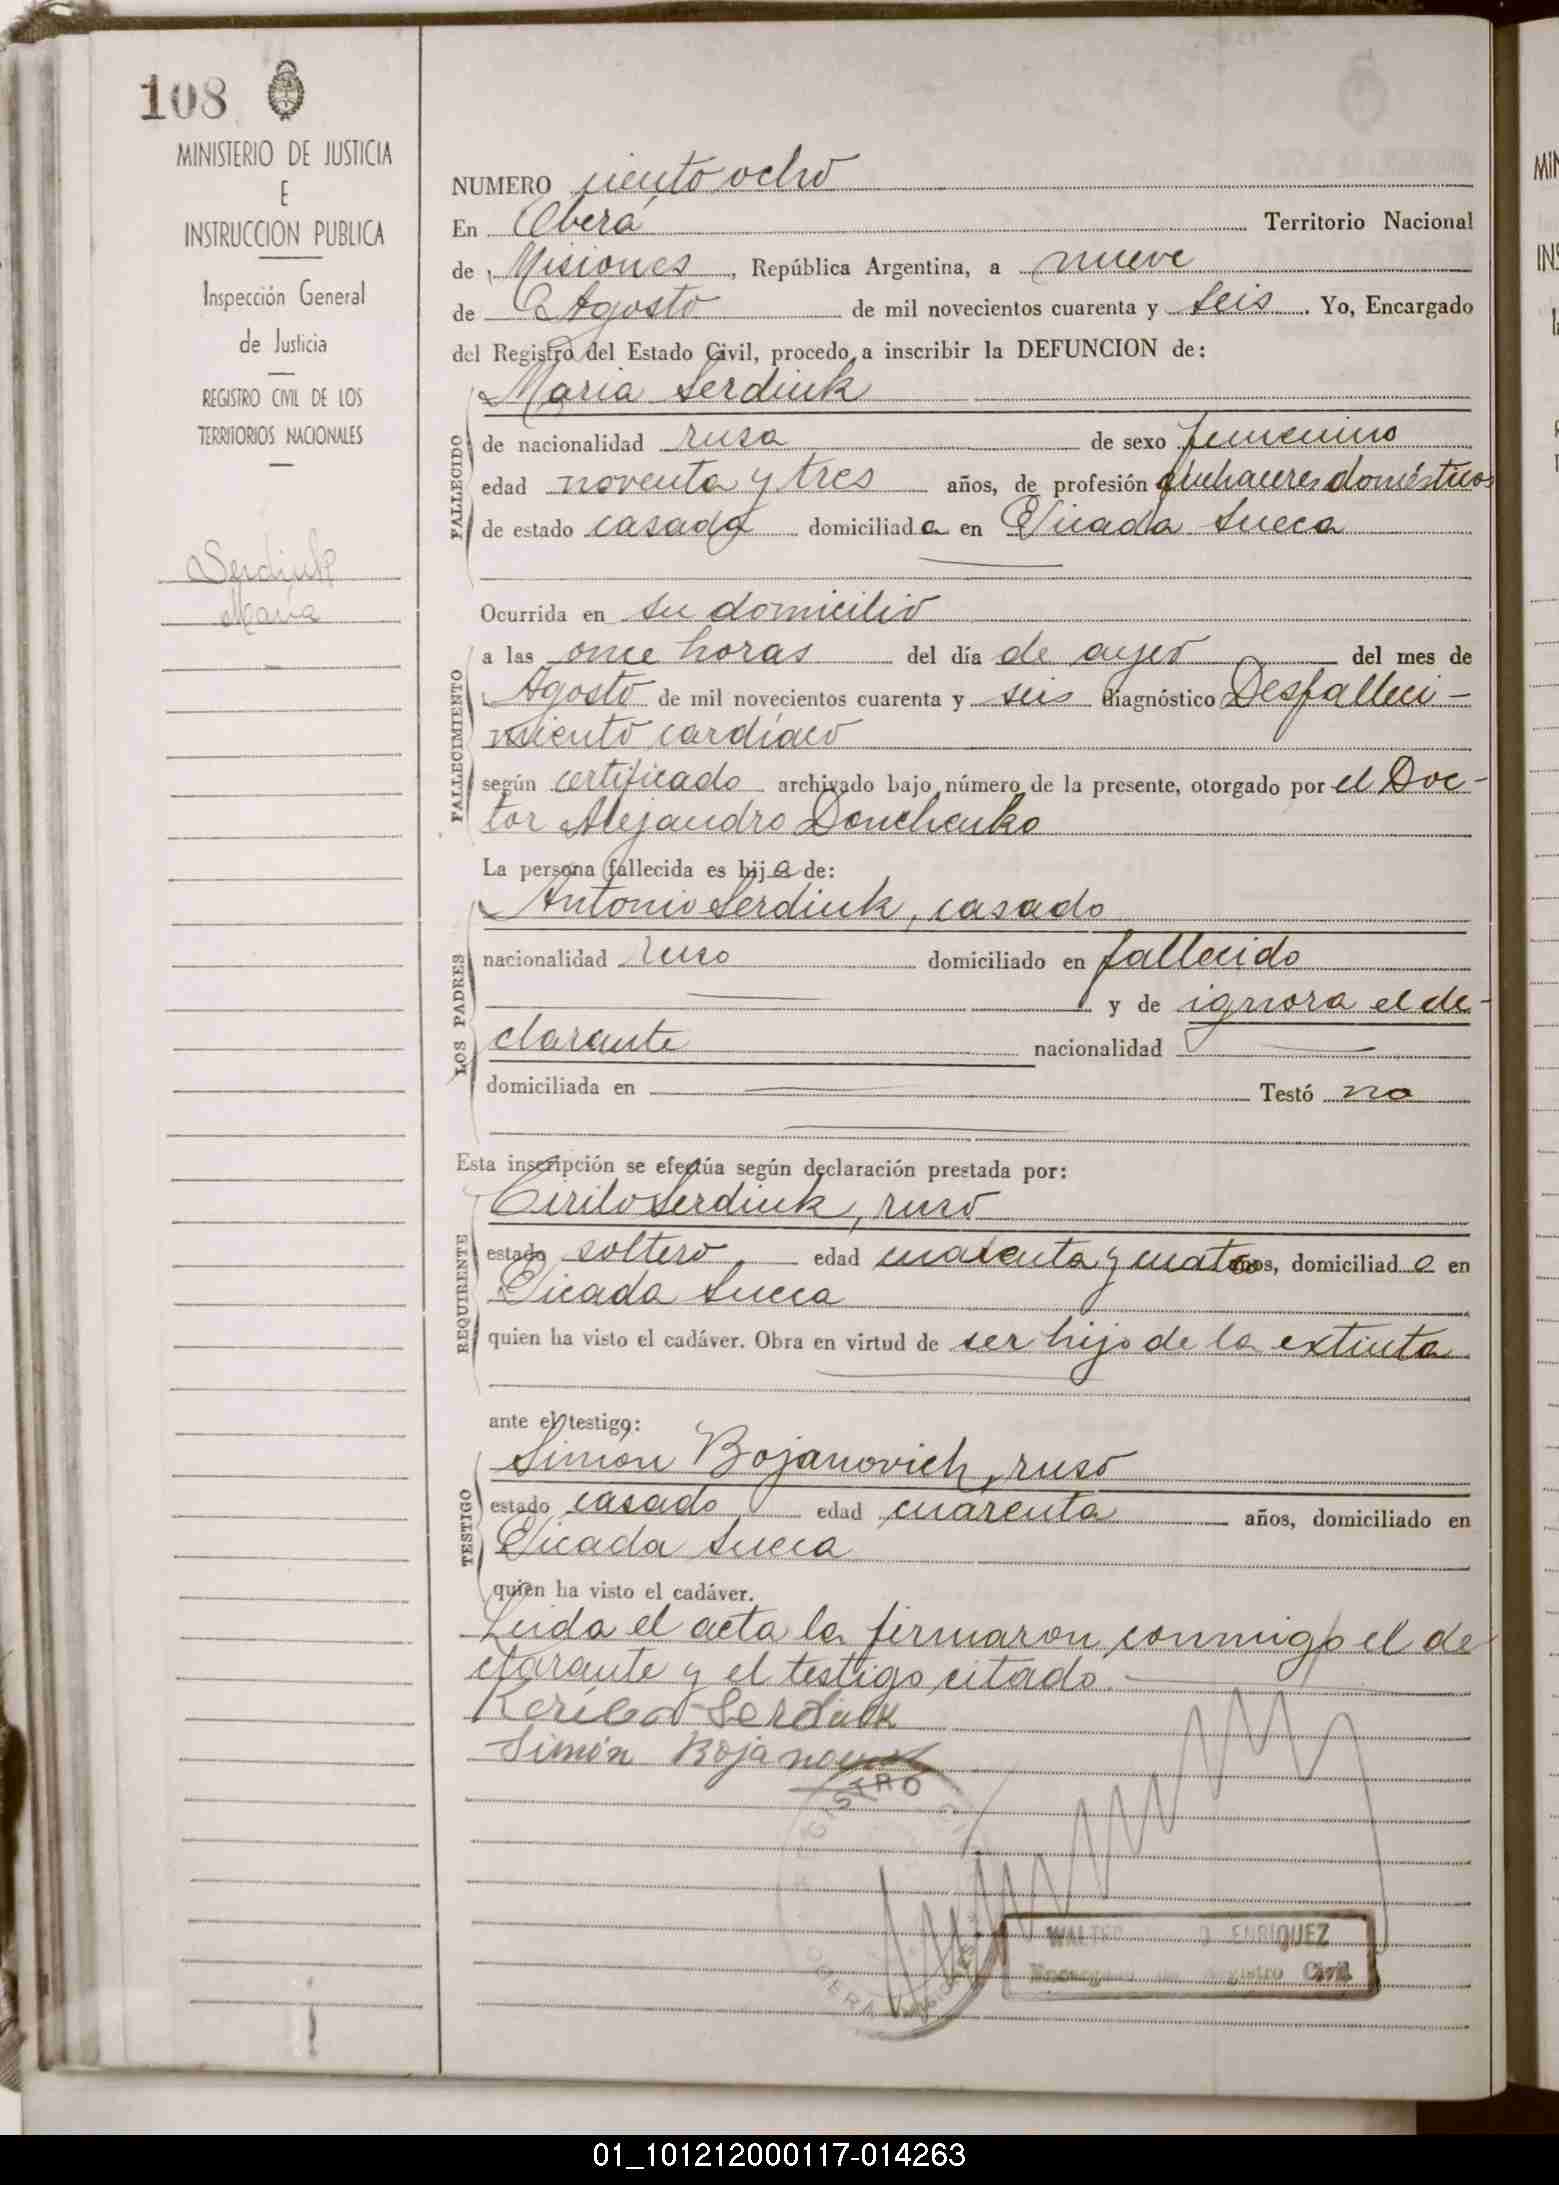 108
MINISTERIO DE JUSTICIA
E
INSTRUCCION PUBLICA
Inspección General
de Justicia
REGISTRO CIVIL DE LOS
TERRITORIOS NACIONALES
Serdiuk
María
NUMERO ciento ocho
En Oberá Territorio Nacional
de Misiones, República Argentina, a nueve
de Agosto de mil novecientos cuarenta y seis. Yo, Encargado
del Registro del Estado Civil, procedo a inscribir la DEFUNCION de:
FALLECIDO
Maria Serdiuk
de nacionalidad rusa de sexo femenino
edad noventa y tres años, de profesión quehaceres domésticos
de estado casada domiciliada en Picada Sueca
Ocurrida en su domicilio
FALLECIMIENTO
a las once horas del día de ayer del mes de
Agosto de mil novecientos cuarenta y seis diagnóstico Desfalleci-
miento cardíaco
según certificado archivado bajo número de la presente, otorgado por el Doc-
tor Alejandro Donchenko
La persona fallecida es hija de:
LOS PADRES
Antonio Serdiuk, casado
nacionalidad ruso domiciliado en fallecido
y de ignora el de-
clarante nacionalidad
domiciliada en Testó no
Esta inscripción se efectúa según declaración prestada por:
REQUIRENTE
Cirilo Serdiuk, ruso
estado soltero edad cuarenta y cuatro años, domiciliado en
Picada Sueca
quien ha visto el cadáver. Obra en virtud de ser hijo de la extinta
ante el testigo:
TESTIGO
Simón Bojanovich, ruso
estado casado edad cuarenta años, domiciliado en
Picada Sueca
quien ha visto el cadáver.
Leida el acta la firmaron conmigo el de
clarante y el testigo citado.
Serdiuk
Simón
REGISTRO
OBERA
WALTER ENRIQUEZ
Encargado de Registro Civil
01_101212000117-014263